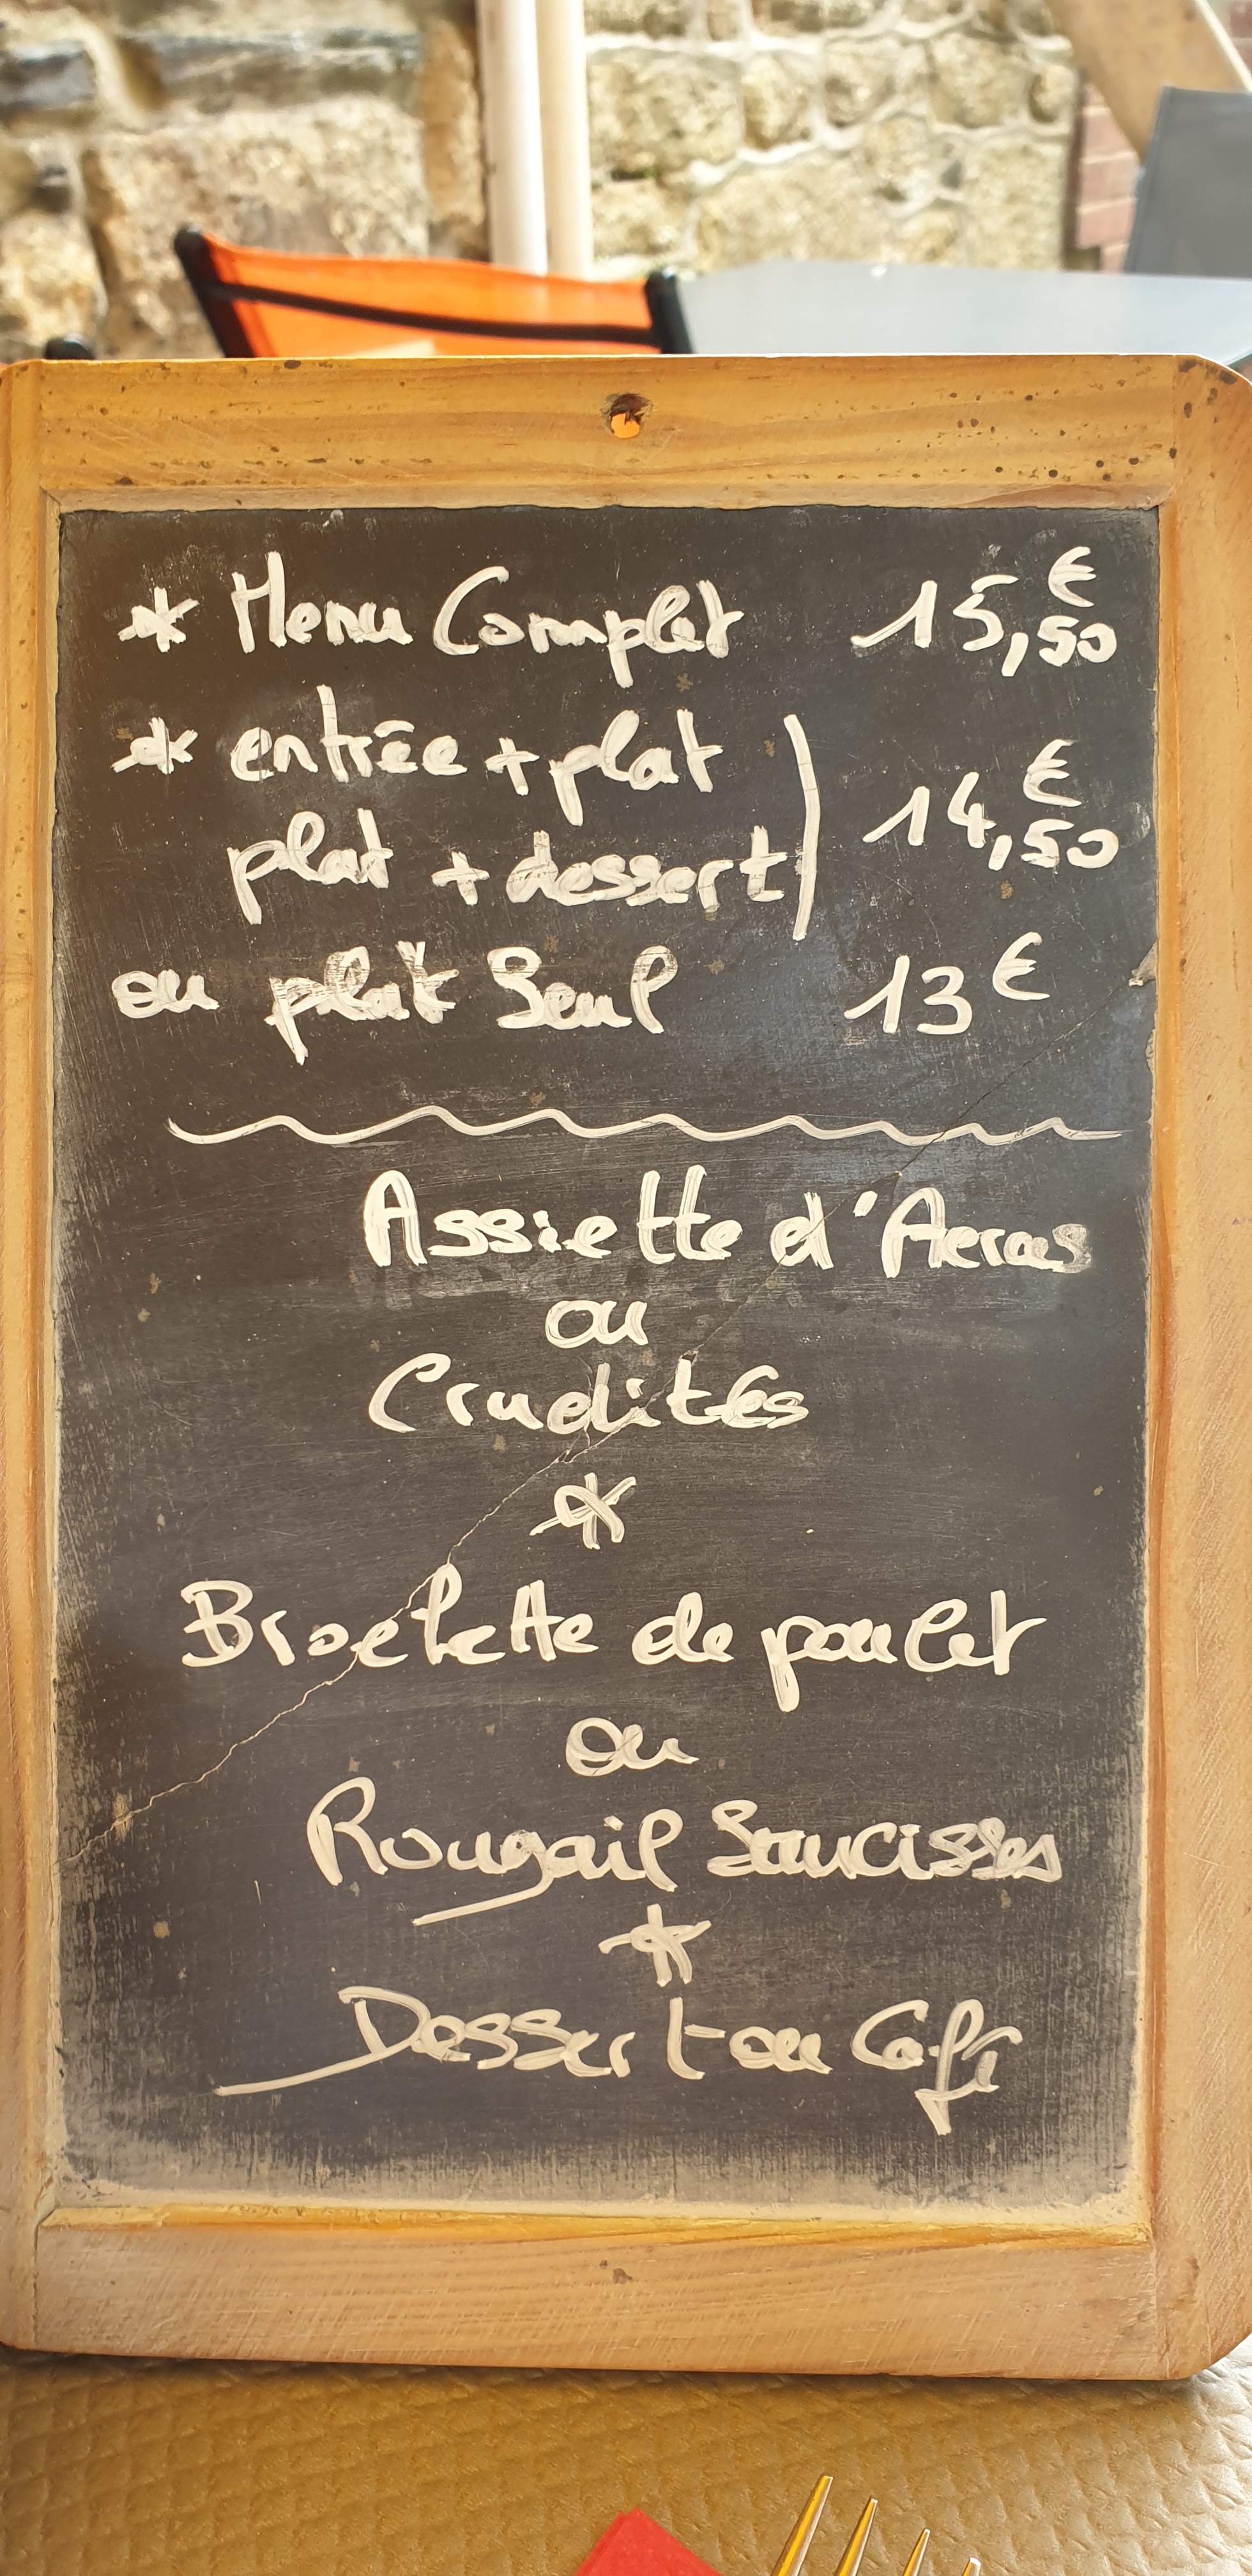 * Menu Complet 15,50 €
* entrée + plat
plat + dessert) 14,50 €
ou plat Seul 13 €
Assiette d'Acras
ou
Crudités
*
Brochette de poulet
ou
Rougail Saucisses
*
Dessert ou Café